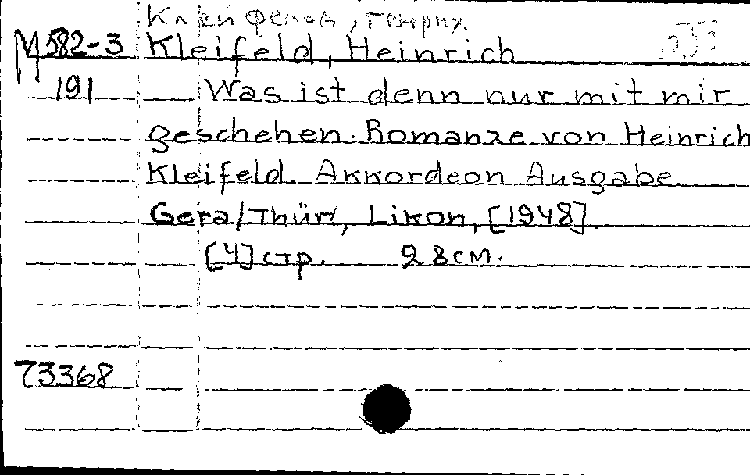 Клейфельд, Генрих.
М 582-3 Kleifeld, Heinrich
191 Was ist denn nur mit mir
geschehen. Romanze von Heinrich
Kleifeld. Akkordeon Ausgabe
Gera/Thür, Likon, [1948].
[4] стр. 28 см.
73368